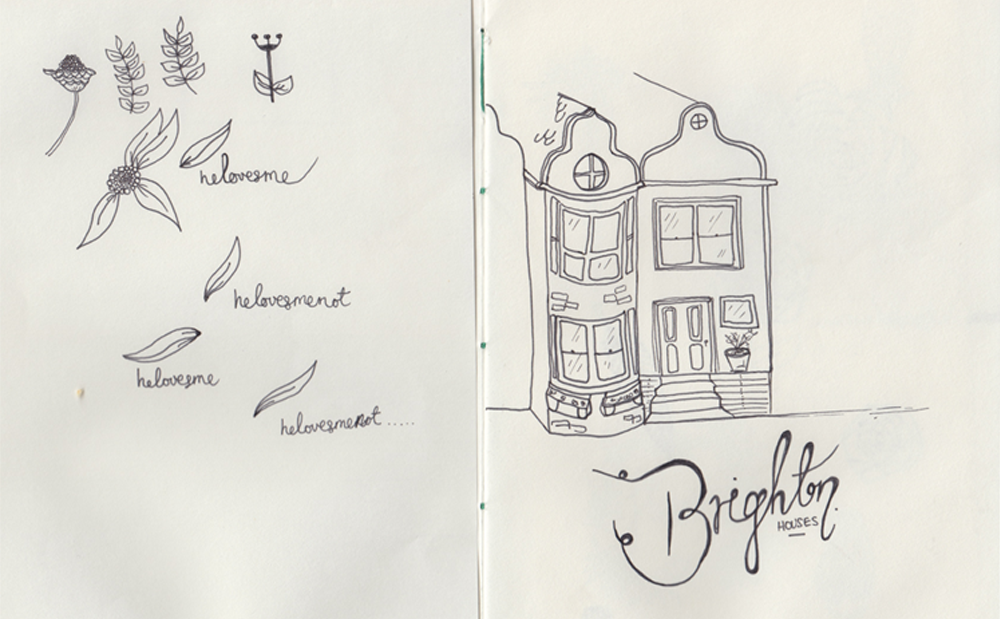 helovesme
helovesmenot
helovesme
helovesmenot.....
Brighton
HOUSES